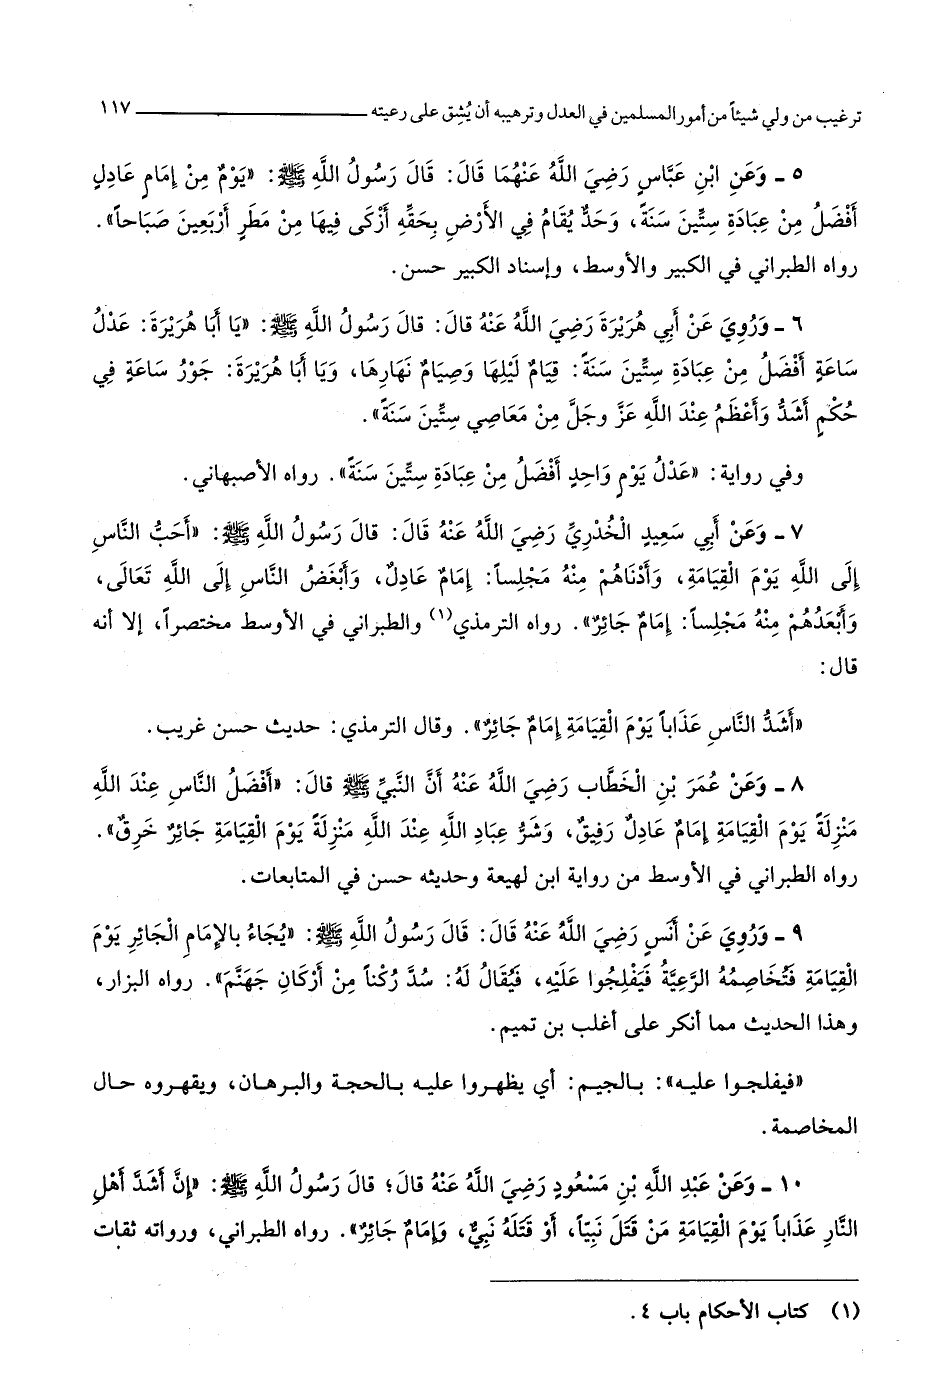 ترغيب من ولي شيئاً من أمور المسلمين في العدل وترهيبه أن يُشِق على رعيته ١١٧
٥ ـ وَعَنِ ابْنِ عَبَّاسٍ رَضِيَ اللَّهُ عَنْهُمَا قَالَ: قَالَ رَسُولُ اللَّهِ ﷺ: «يَوْمٌ مِنْ إِمَامٍ عَادِلٍ
أَفْضَلُ مِنْ عِبَادَةِ سِتِّينَ سَنَةً، وَحَدٌّ يُقَامُ فِي الأَرْضِ بِحَقِّهِ أَزْكَى فِيهَا مِنْ مَطَرِ أَرْبَعِينَ صَبَاحاً».
رواه الطبراني في الكبير والأوسط، وإسناد الكبير حسن.
٦ ـ وَرُوِيَ عَنْ أَبِي هُرَيْرَةَ رَضِيَ اللَّهُ عَنْهُ قَالَ: قَالَ رَسُولُ اللَّهِ ﷺ: «يَا أَبَا هُرَيْرَةَ: عَدْلُ
سَاعَةٍ أَفْضَلُ مِنْ عِبَادَةِ سِتِّينَ سَنَةً: قِيَامُ لَيْلِهَا وَصِيَامُ نَهَارِهَا، وَيَا أَبَا هُرَيْرَةَ: جَوْرُ سَاعَةٍ فِي
حُكْمٍ أَشَدُّ وَأَعْظَمُ عِنْدَ اللَّهِ عَزَّ وجَلَّ مِنْ مَعَاصِي سِتِّينَ سَنَةً».
وفي رواية: «عَدْلُ يَوْمٍ وَاحِدٍ أَفْضَلُ مِنْ عِبَادَةِ سِتِّينَ سَنَةً». رواه الأصبهاني.
٧ ـ وَعَنْ أَبِي سَعِيدٍ الْخُدْرِيِّ رَضِيَ اللَّهُ عَنْهُ قَالَ: قالَ رَسُولُ اللَّهِ ﷺ: «أَحَبُّ النَّاسِ
إِلَى اللَّهِ يَوْمَ الْقِيَامَةِ، وَأَدْنَاهُمْ مِنْهُ مَجْلِساً: إِمَامٌ عَادِلٌ، وَأَبْغَضُ النَّاسِ إِلَى اللَّهِ تَعَالَى،
وَأَبَعَدُهُمْ مِنْهُ مَجْلِساً: إِمَامٌ جَائِرٌ». رواه الترمذي(١) والطبراني في الأوسط مختصراً، إلا أنه
قال:
«أَشَدُّ النَّاسِ عَذَاباً يَوْمَ الْقِيَامَةِ إِمَامٌ جَائِرٌ». وقال الترمذي: حديث حسن غريب.
٨ ـ وَعَنْ عُمَرَ بْنِ الْخَطَّاب رَضِيَ اللَّهُ عَنْهُ أَنَّ النَّبِيَّ ﷺ قالَ: «أَفْضَلُ النَّاسِ عِنْدَ اللَّهِ
مَنْزِلَةً يَوْمَ الْقِيَامَةِ إِمَامٌ عَادِلٌ رَفِيقٌ، وَشَرُّ عِبَادِ اللَّهِ عِنْدَ اللَّهِ مَنْزِلَةً يَوْمَ الْقِيَامَةِ جَائِرٌ خَرِقٌ».
رواه الطبراني في الأوسط من رواية ابن لهيعة وحديثه حسن في المتابعات.
٩ ـ وَرُوِيَ عَنْ أَنَسٍ رَضِيَ اللَّهُ عَنْهُ قَالَ: قَالَ رَسُولُ اللَّهِ ﷺ: «يُجَاءُ بالإِمَامِ الْجَائِرِ يَوْمَ
الْقِيَامَةِ فَتُخَاصِمُهُ الرَّعِيَّةُ فَيَفْلِجُوا عَلَيْهِ، فَيُقَالُ لَهُ: سُدَّ رُكْناً مِنْ أَرْكَانِ جَهَنَّمَ». رواه البزار،
وهذا الحديث مما أنكر على أغلب بن تميم.
«فيفلجوا عليه»: بالجيم: أي يظهروا عليه بالحجة والبرهان، ويقهروه حال
المخاصمة.
١٠ ـ وَعَنْ عَبْدِ اللَّهِ بْنِ مَسْعُودٍ رَضِيَ اللَّهُ عَنْهُ قالَ؛ قالَ رَسُولُ اللَّهِ ﷺ: «إِنَّ أَشَدَّ أَهْلِ
النَّارِ عَذَاباً يَوْمَ الْقِيَامَةِ مَنْ قَتَلَ نَبِيّاً، أَوْ قَتَلَهُ نَبِيٌّ، وَإِمَامٌ جَائِرٌ». رواه الطبراني، ورواته ثقات
(١) كتاب الأحكام باب ٤.